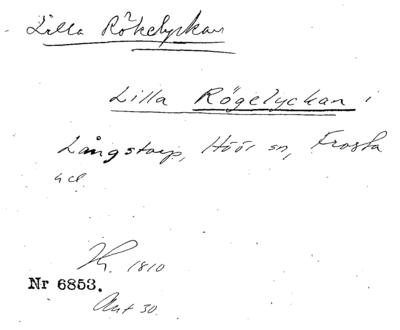 Lilla Rökelyckan
Lilla Rögelyckan i
Långstorp, Höör sn, Frosta
hd
1810
Nr 6853.
Ant 30.